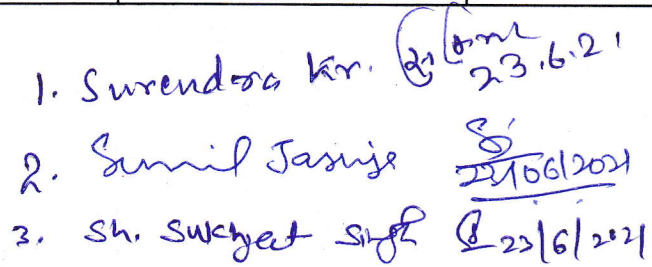 1. Surendra Kr. 23.6.21
2. Sunil Jasuja 23/06/2021
3. Sh. Sukhjeet Singh 23/6/2021